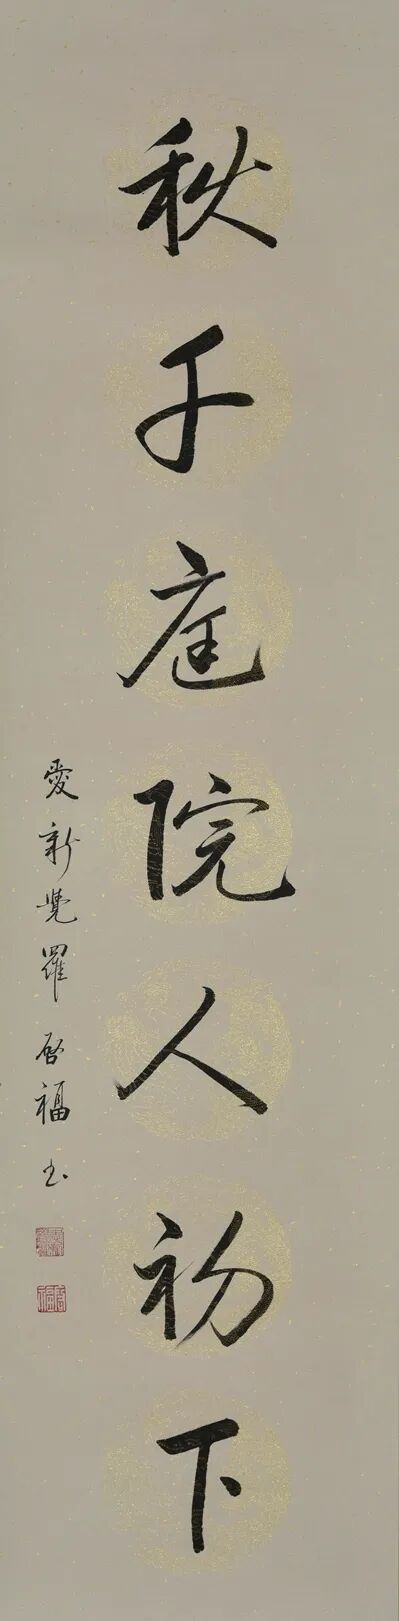 秋千庭院人初下
愛新覺羅啓福书